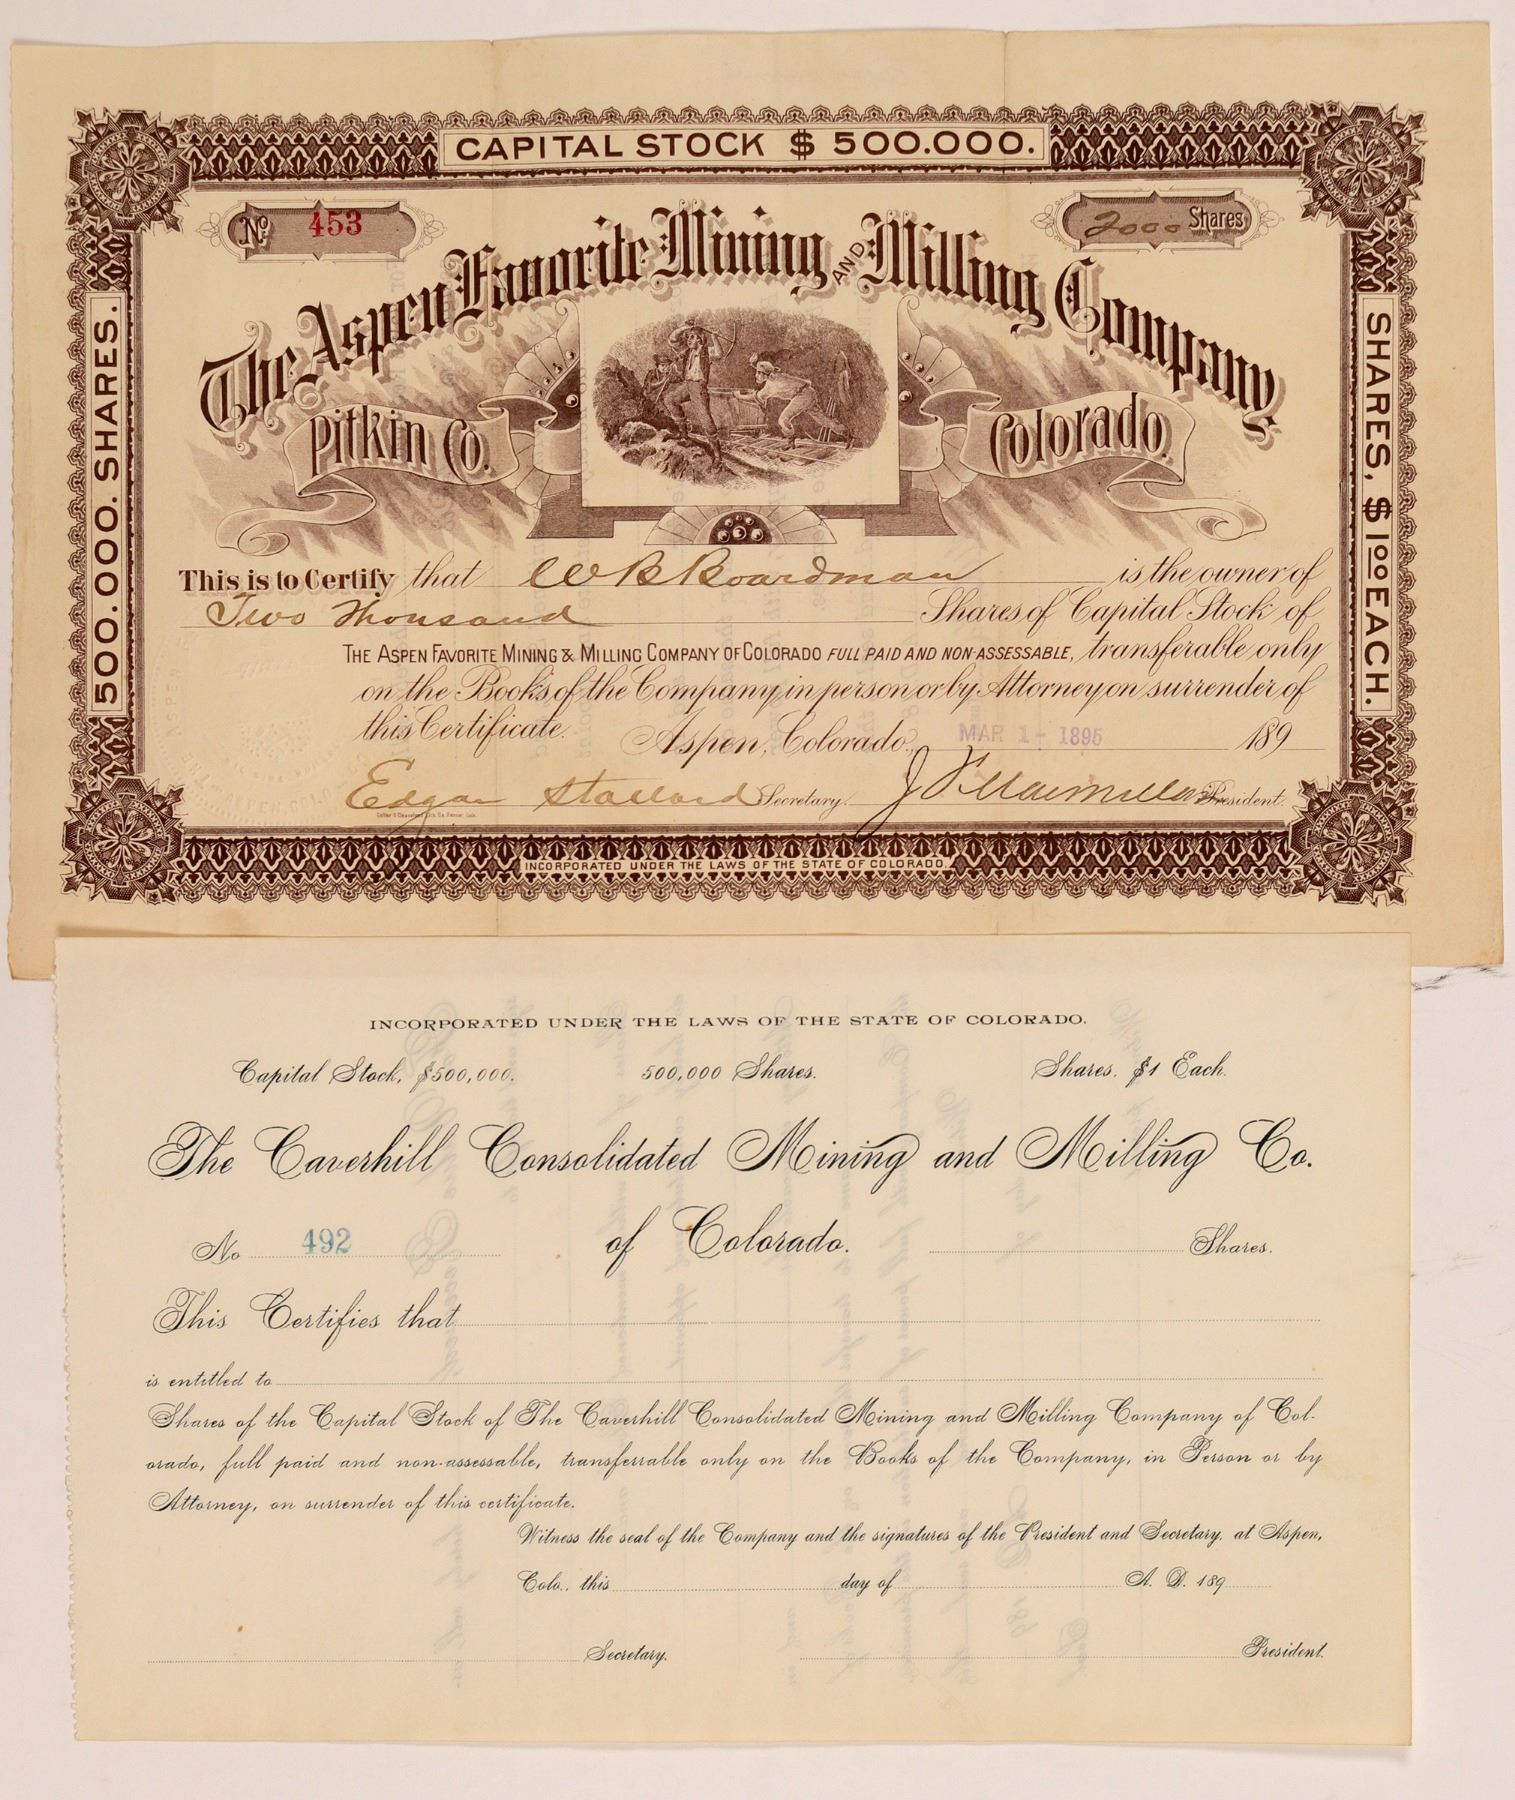 CAPITAL STOCK $ 500.000.
No. 453
2000 Shares
The Aspen Favorite Mining AND Milling Company
Pitkin Co. Colorado.
500.000. SHARES.
SHARES, $ 1.00 EACH.
This is to Certify that W B Boardman is the owner of
Two Thousand Shares of Capital Stock of
THE ASPEN FAVORITE MINING & MILLING COMPANY OF COLORADO FULL PAID AND NON-ASSESSABLE, transferable only
on the Books of the Company, in person or by Attorney on surrender of
this Certificate. Aspen, Colorado, MAR 1 - 1895 189
Edgar Stallard Secretary. President.
INCORPORATED UNDER THE LAWS OF THE STATE OF COLORADO.
INCORPORATED UNDER THE LAWS OF THE STATE OF COLORADO.
Capital Stock, $500,000. 500,000 Shares. Shares, $1 Each.
The Caverhill Consolidated Mining and Milling Co.
No 492 of Colorado. Shares.
This Certifies that
is entitled to
Shares of the Capital Stock of The Caverhill Consolidated Mining and Milling Company of Col-
orado, full paid and non-assessable, transferrable only on the Books of the Company, in Person or by
Attorney, on surrender of this certificate.
Witness the seal of the Company and the signatures of the President and Secretary, at Aspen,
Colo., this day of A. D. 189
Secretary. President.